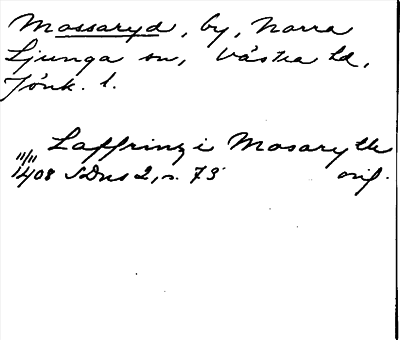 Mossaryd, by, Norra
Ljunga sn, Västra hd,
Jönk. l.
Laffrinz i Mosarydh
11/11 1408 SDns 2, s. 75 orig.